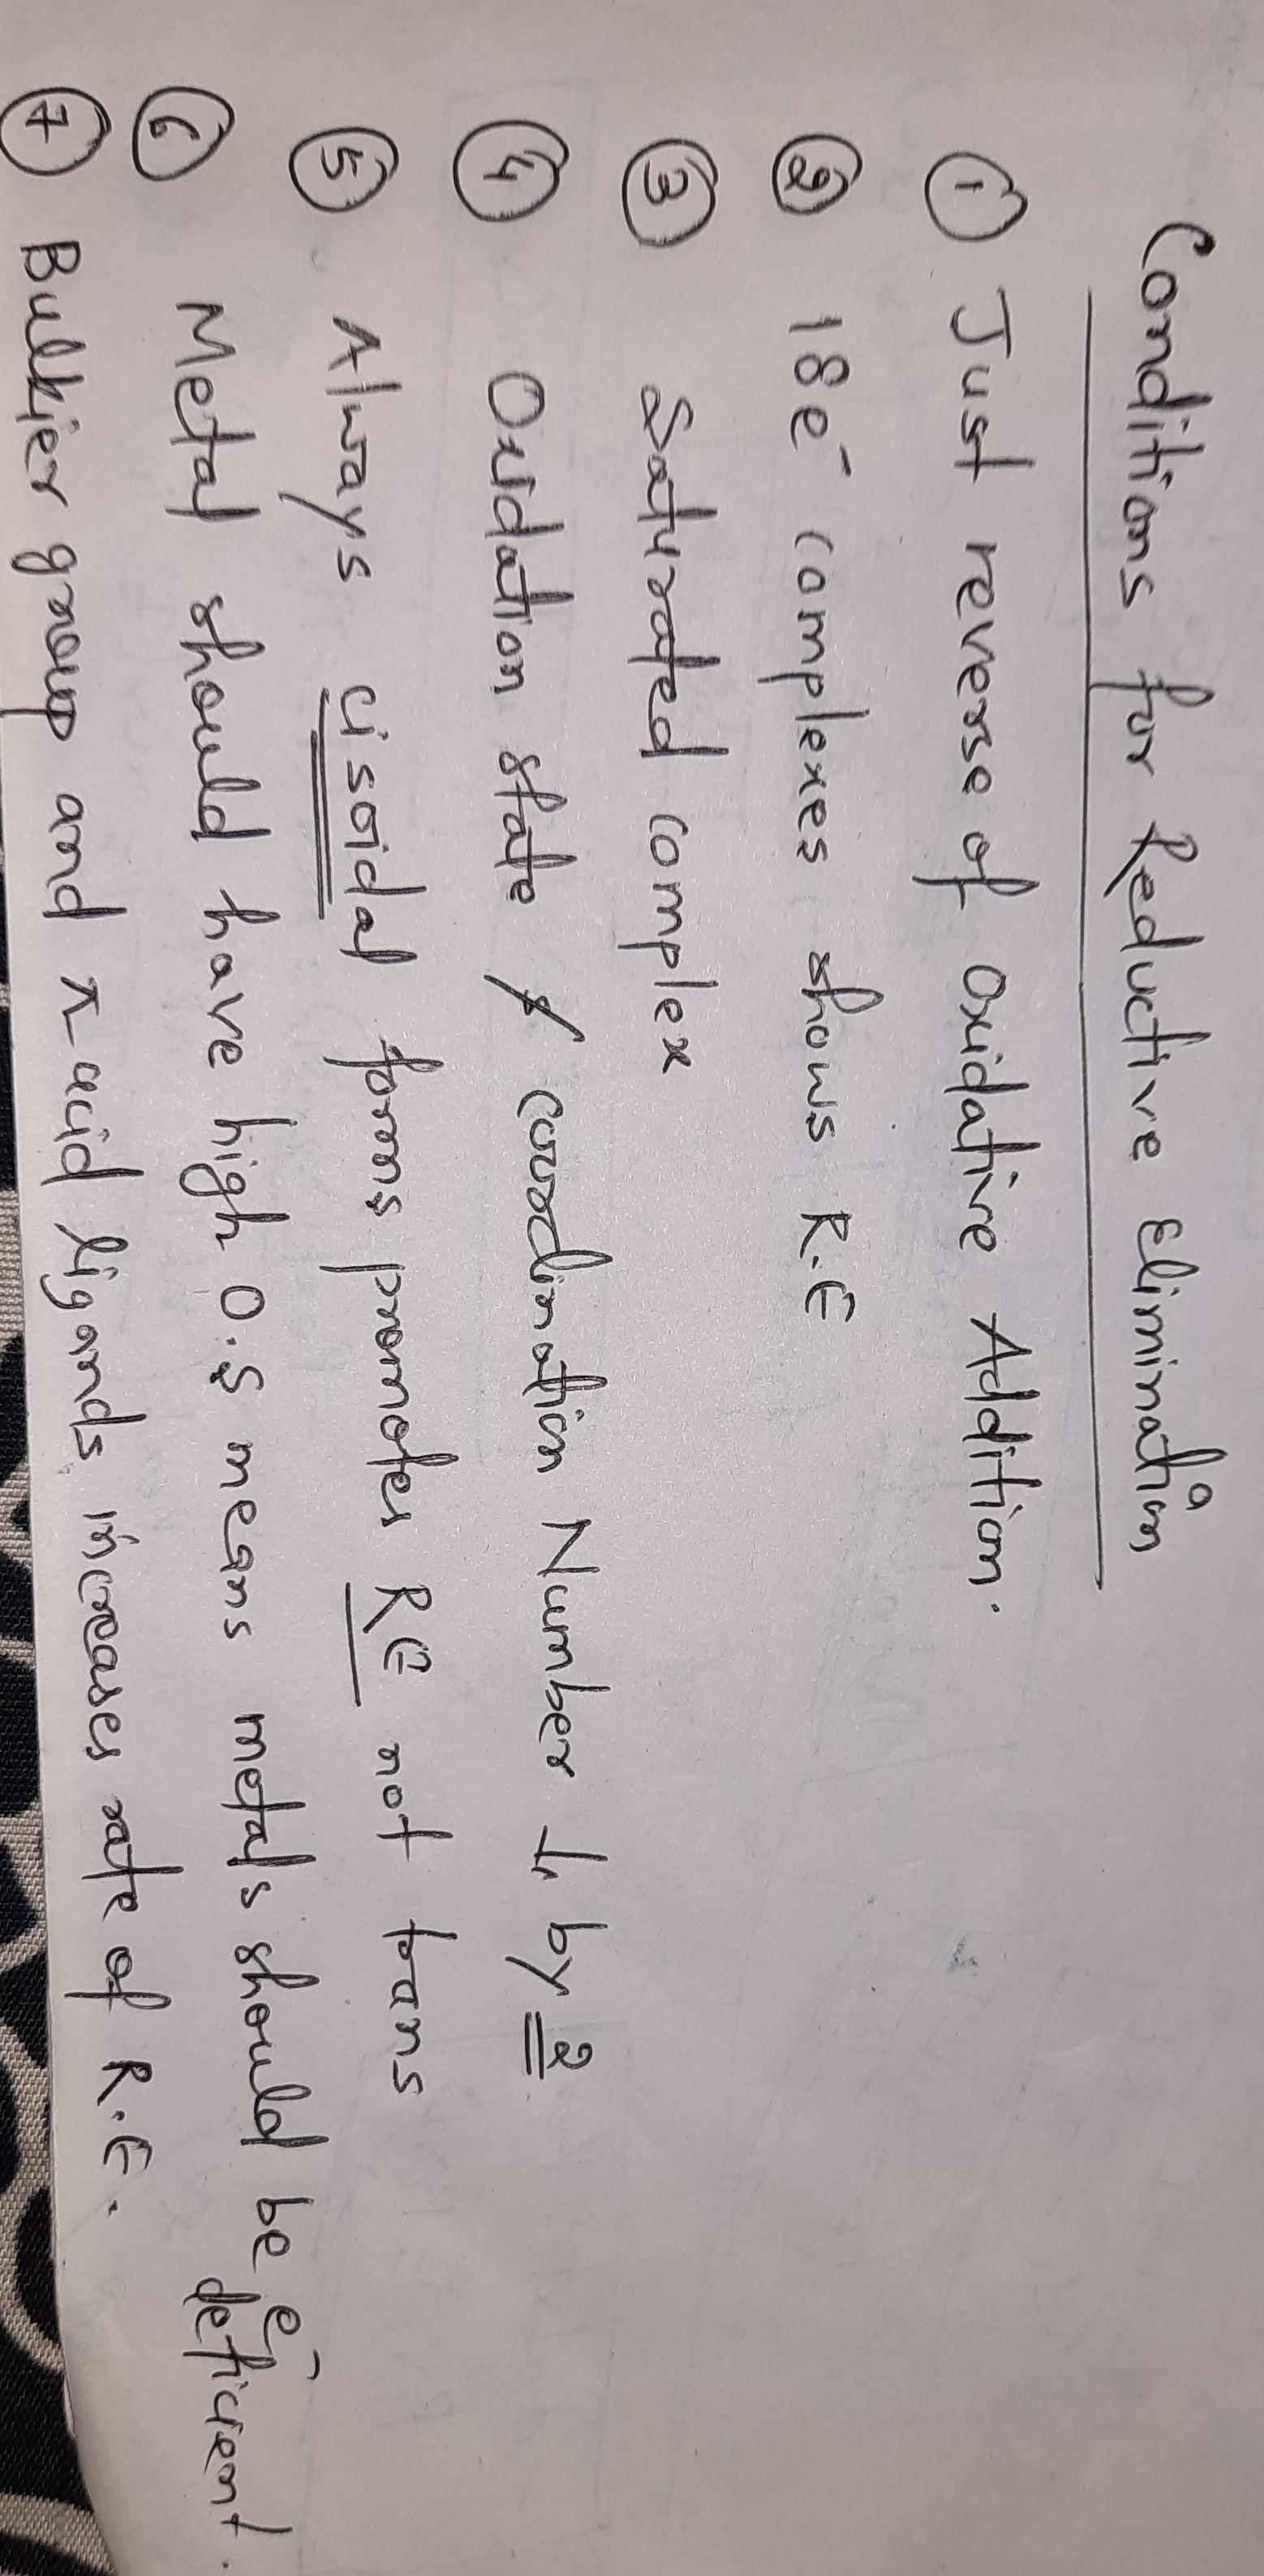 Conditions for Reductive Elimination
① Just reverse of Oxidative Addition.
② 18e⁻ complexes shows R.E
③ Saturated complex
④ Oxidation state & coordination Number ↓ by 2
⑤ Always cisoidal forms promotes RE not trans
⑥ Metal should have high O.S means metals should be e⁻ deficient.
⑦ Bulkier group and π-acid ligands increases rate of R.E.